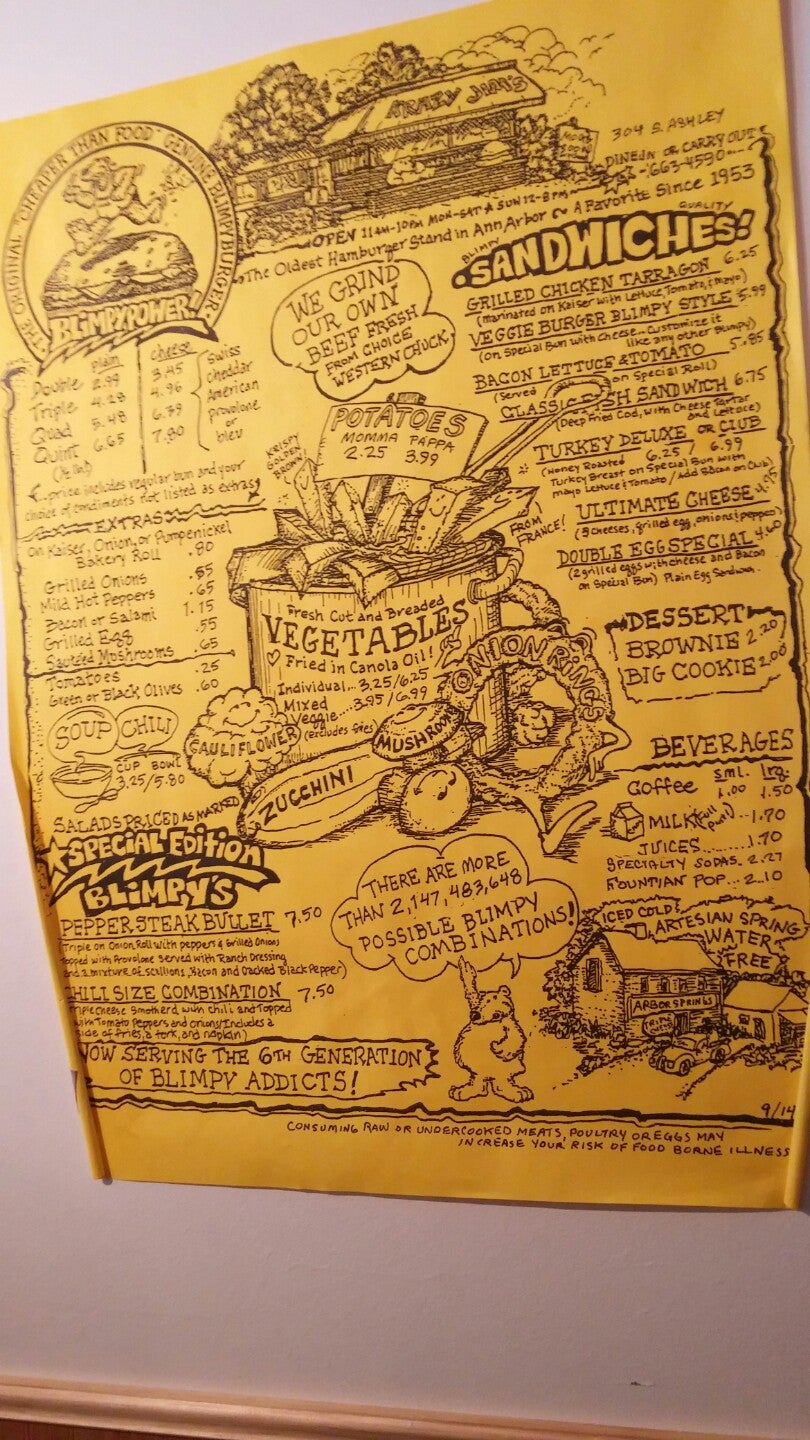 KRAZY JIM'S
304 S. ASHLEY
DINE IN OR CARRY OUT
663-4590
OPEN 11AM-10PM MON-SAT ★ SUN 12-8PM
The Oldest Hamburger Stand in Ann Arbor ~ A Favorite Since 1953
THE ORIGINAL "CHEAPER THAN FOOD" GENUINE BLIMPYBURGER
BLIMPYPOWER!
plain cheese
Double 2.99 3.45
Triple 4.28 4.96
Quad 5.48 6.39
Quint 6.65 7.80
(½ lb.)
Swiss
cheddar
American
provolone
or
bleu
price includes regular bun and your
choice of condiments not listed as extras
EXTRAS
On Kaiser, Onion, or Pumpernickel
Bakery Roll .80
Grilled Onions .85
Mild Hot Peppers .65
Bacon or Salami 1.15
Grilled Egg .55
Sauteed Mushrooms .65
Tomatoes .25
Green or Black Olives .60
SOUP CHILI
CUP BOWL
3.25/5.80
SALADS PRICED AS MARKED
SPECIAL EDITION
BLIMPY'S
PEPPER STEAK BULLET 7.50
(Triple on Onion Roll with peppers & Grilled Onions
Topped with Provolone served with Ranch Dressing
and a mixture of scallions, Bacon and Cracked Black Pepper)
CHILI SIZE COMBINATION 7.50
Triple cheese smotherd with chili and Topped
with Tomato Peppers and onions/Includes a
side of fries, a fork, and napkin)
NOW SERVING THE 6TH GENERATION
OF BLIMPY ADDICTS!
WE GRIND
OUR OWN
BEEF FRESH
FROM CHOICE
WESTERN CHUCK.
POTATOES
MOMMA PAPPA
2.25 3.99
KRISPY
GOLDEN
BROWN!
FROM
FRANCE!
Fresh Cut and Breaded
VEGETABLES
Fried in Canola Oil!
Individual...3.25/6.25
Mixed
Veggie...3.95/6.99
(excludes fries)
ONION RINGS
CAULIFLOWER
MUSHROOM
ZUCCHINI
THERE ARE MORE
THAN 2,147,483,648
POSSIBLE BLIMPY
COMBINATIONS!
BLIMPY QUALITY
SANDWICHES!
GRILLED CHICKEN TARRAGON 6.25
(marinated on Kaiser with Lettuce Tomato, & mayo)
VEGGIE BURGER BLIMPY STYLE 5.99
(on Special Bun with Cheese... Customize it
like any other Blimpy)
BACON LETTUCE & TOMATO 5.85
(Served on Special Roll)
CLASSIC FISH SANDWICH 6.75
(Deep Fried Cod, with Cheese Tartar
and Lettuce)
TURKEY DELUXE OR CLUB
6.25 / 6.99
(Honey Roasted
Turkey Breast on Special Bun with
mayo Lettuce & Tomato / Add Bacon on Club)
ULTIMATE CHEESE
(3 cheeses, grilled egg, onions & peppers)
DOUBLE EGG SPECIAL 4.60
(2 grilled eggs with cheese and Bacon
on Special Bun) Plain Egg Sandwich
DESSERT
BROWNIE 2.20
BIG COOKIE 2.00
BEVERAGES
sml. lrg.
Coffee 1.00 1.50
MILK (full pint) 1.70
JUICES.......1.70
SPECIALTY SODAS 2.27
FOUNTIAN POP...2.10
ICED COLD!
ARTESIAN SPRING
WATER
FREE
ARBOR SPRINGS
9/14
CONSUMING RAW OR UNDERCOOKED MEATS, POULTRY OR EGGS MAY
INCREASE YOUR RISK OF FOOD BORNE ILLNESS